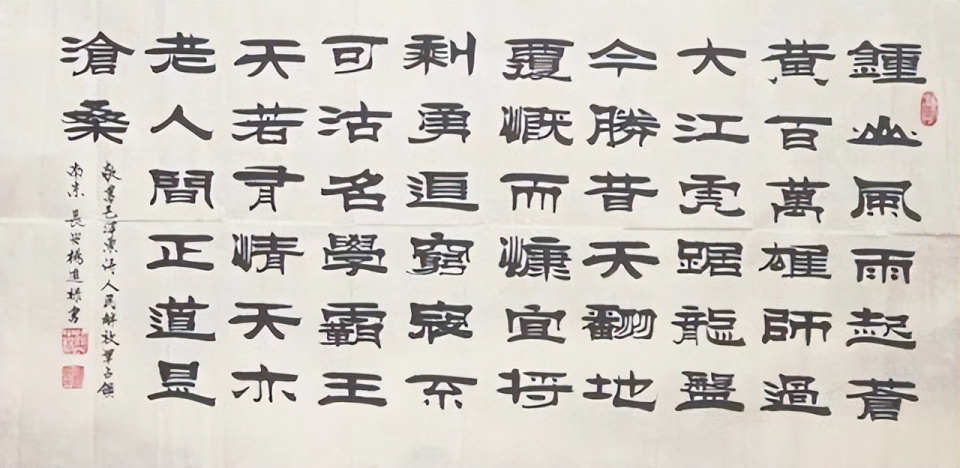 鍾山風雨起蒼
黃百萬雄師過
大江虎踞龍盤
今勝昔天翻地
覆慨而慷宜將
剩勇追窮寇不
可沽名學霸王
天若有情天亦
老人間正道是
滄桑
敬書毛澤東詩人民解放軍占領
南京 長安